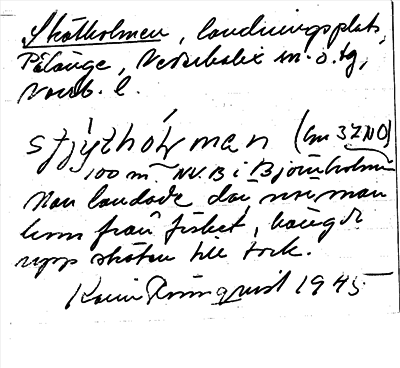 Skötholmen, landningsplats,
Pålänge, Nederkalix sn. o. tg,
Norrb. l.
(Gm 3ZNO)
100 m NV. B i Björnholmen
Man landade där, när man
kom från fisket, hängde
upp sköten till tork.
Karin Rönnquist 1945